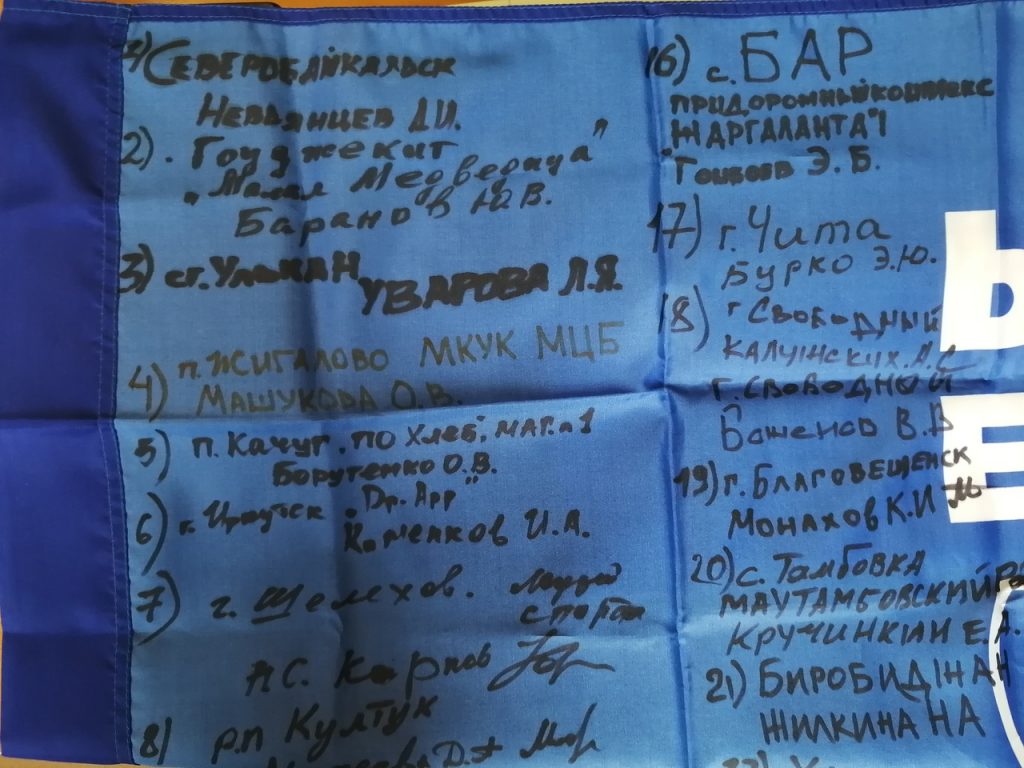 1) СЕВЕРОБАЙКАЛЬСК
НЕВЬЯНЦЕВ Д.И.
2). Гоуджекит
"Малая Медведица"
Баранов Ю.В.
3) ст. Улькан
УВАРОВА Л.Я.
4) п. ЖИГАЛОВО МКУК МЦБ
МАШУКОВА О.В.
5) п. Качуг. ПО Хлеб, маг. 1
Борутенко О.В.
6) г. Иркутск "Dr. App"
И.А.
7) г. Шелехов.
спорта
А.С. Карпов
8) р.п Култук
Д.
16) с. БАР
ПРИДОРОЖНЫЙ КОМПЛЕКС
"ЖАРГАЛАНТА"
Э. Б.
17) г. Чита
БУРКО Э.Ю.
18) г СВОБОДНЫЙ
КАЛУЖСКИХ. А.С
Г. СВОБОДНЫЙ
Баженов В.В
19) г. БЛАГОВЕЩЕНСК
МОНАХОВ К.И
20) с. ТАМБОВКА
МАУ ТАМБОВСКИЙ
КРУЧИНКИН Е.А.
21) БИРОБИДЖАН
ЖИЛКИНА Н А
Ь